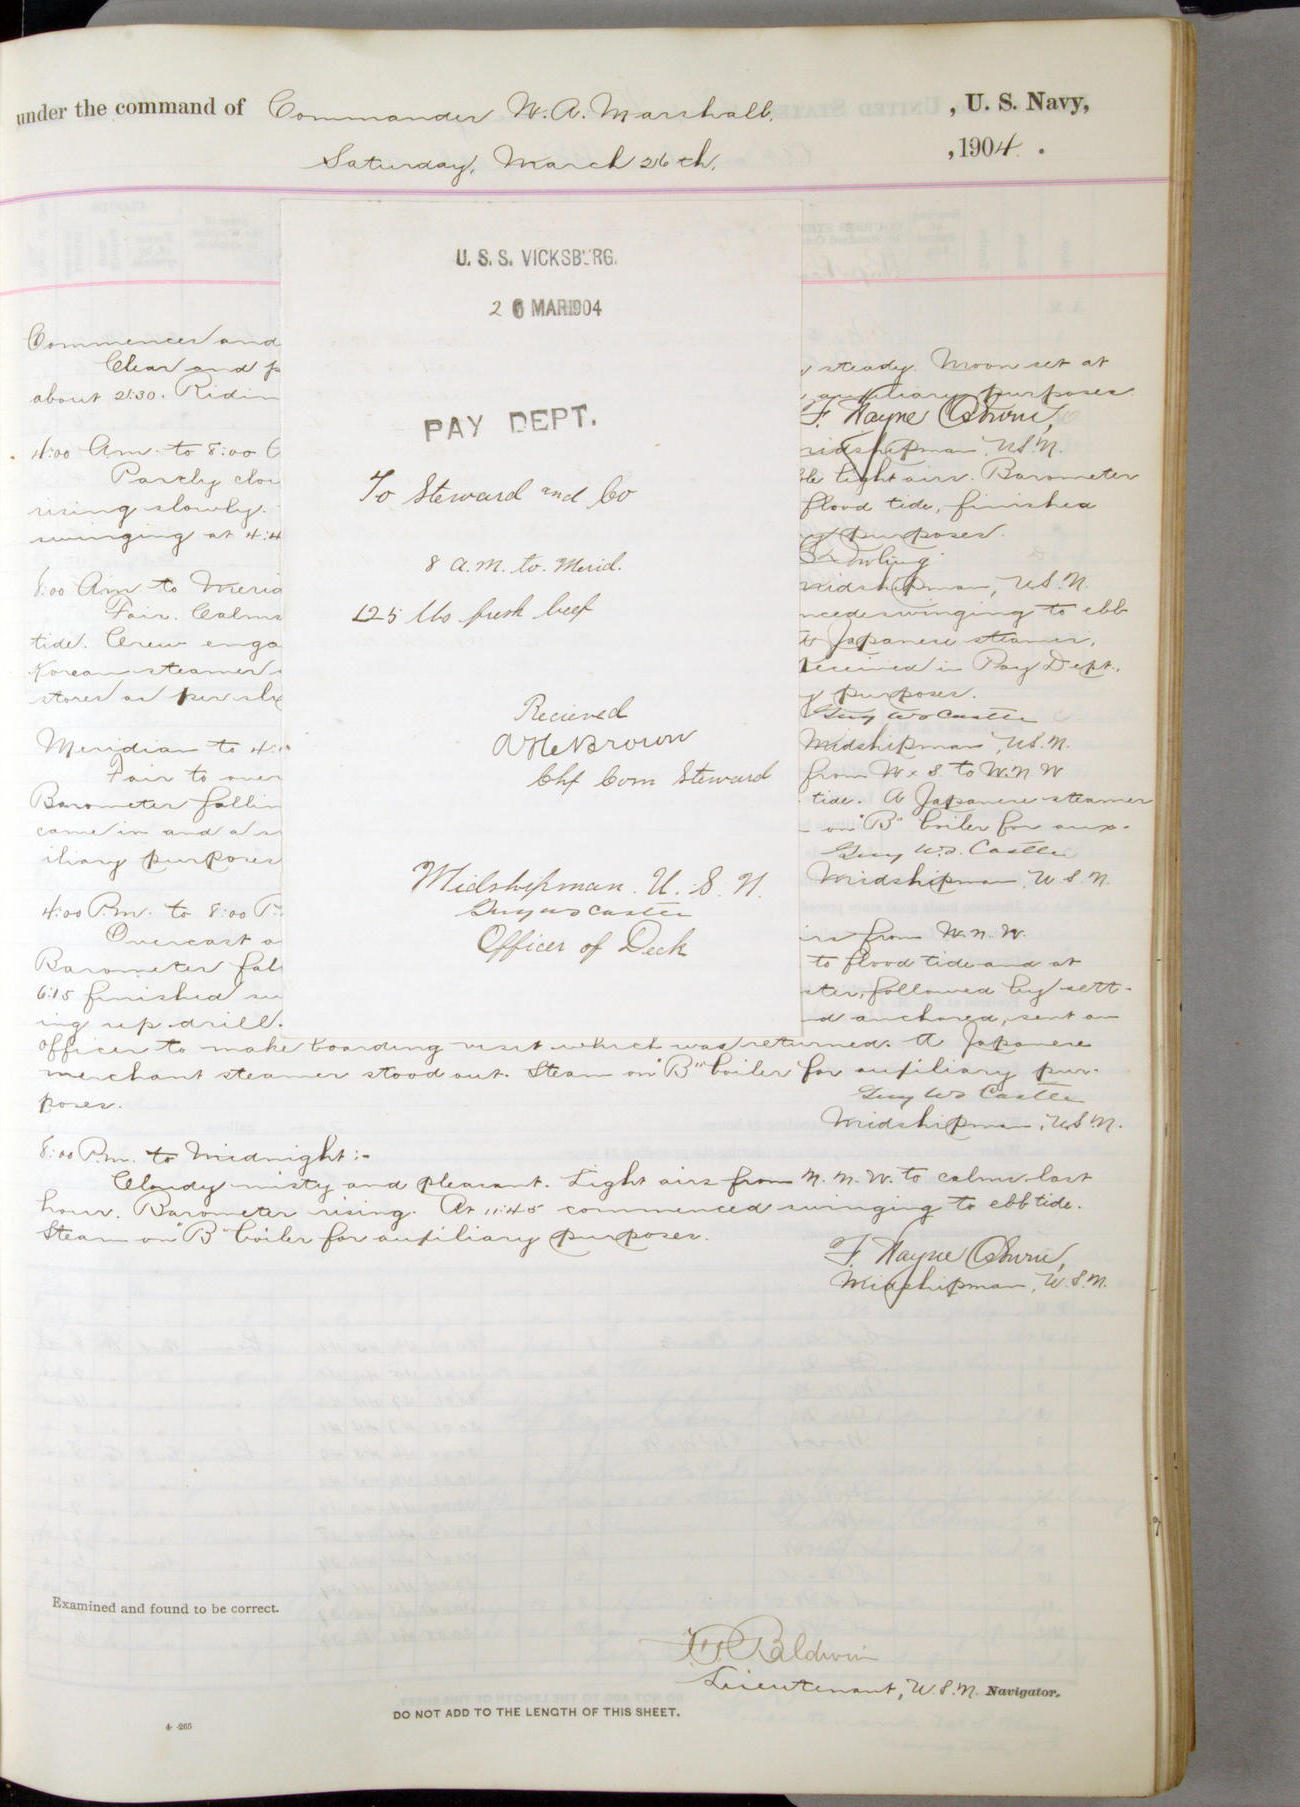 under the command of Commander W. A. Marshall, , U. S. Navy,
Saturday, March 26th. , 1904 .
U. S. S. VICKSBURG.
26 MAR 1904
PAY DEPT.
To Steward and Co
8 A.M. to. Merid.
125 lbs fresh beef
Recieved
Brown
Chf Com Steward
Midshipman. U. S. N.
Guy W S Castle
Officer of Deck
Commences and
Clear and p steady. Moon set at
about 2:30. Ridin auxiliary purposes
F. Wayne Osburn,
Midshipman, U.S.N.
4:00 Am. to 8:00
Partly clou ble light airs. Barometer
rising slowly. flood tide, finished
swinging at 4:4 purposes.
Midshipman, U.S.N.
8:00 Am to Merid
Fair. Calms nced swinging to ebb
tide. Crew enga Japanese steamer,
Korean steamer received in Pay Dept.
stores as per sli purposes.
Guy W S Castle
Midshipman, U.S.N.
Meridian to 4:
Fair to over from W x S to W.N.W
Barometer fallin tide. A Japanese steamer
came in and a s on "B" boiler for aux-
iliary purposes Guy W.S. Castle
Midshipman, U.S.N.
4:00 P.m. to 8:00 P
Overcast a irs from W.N.W.
Barometer fal to flood tide and at
6:15 finished sw ster, followed by sett-
ing up drill. nd anchored, sent an
officer to make boarding visit which was returned. A Japanese
merchant steamer stood out. Steam on "B" boiler for auxiliary pur-
poses. Guy W S Castle
Midshipman, U.S.N.
8:00 P.m. to Midnight:-
Cloudy misty and pleasant. Light airs from N.N.W. to calms last
hour. Barometer rising. At 11:45 commenced swinging to ebb tide.
Steam on "B" boiler for auxiliary purposes.
F. Wayne Osburn,
Midshipman, U.S.N.
Examined and found to be correct.
Baldwin
Lieutenant, U.S.N. Navigator.
DO NOT ADD TO THE LENGTH OF THIS SHEET.
4-265